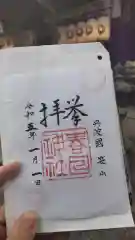 丹波國
奉拝
春日
神社
令和五年一月一日